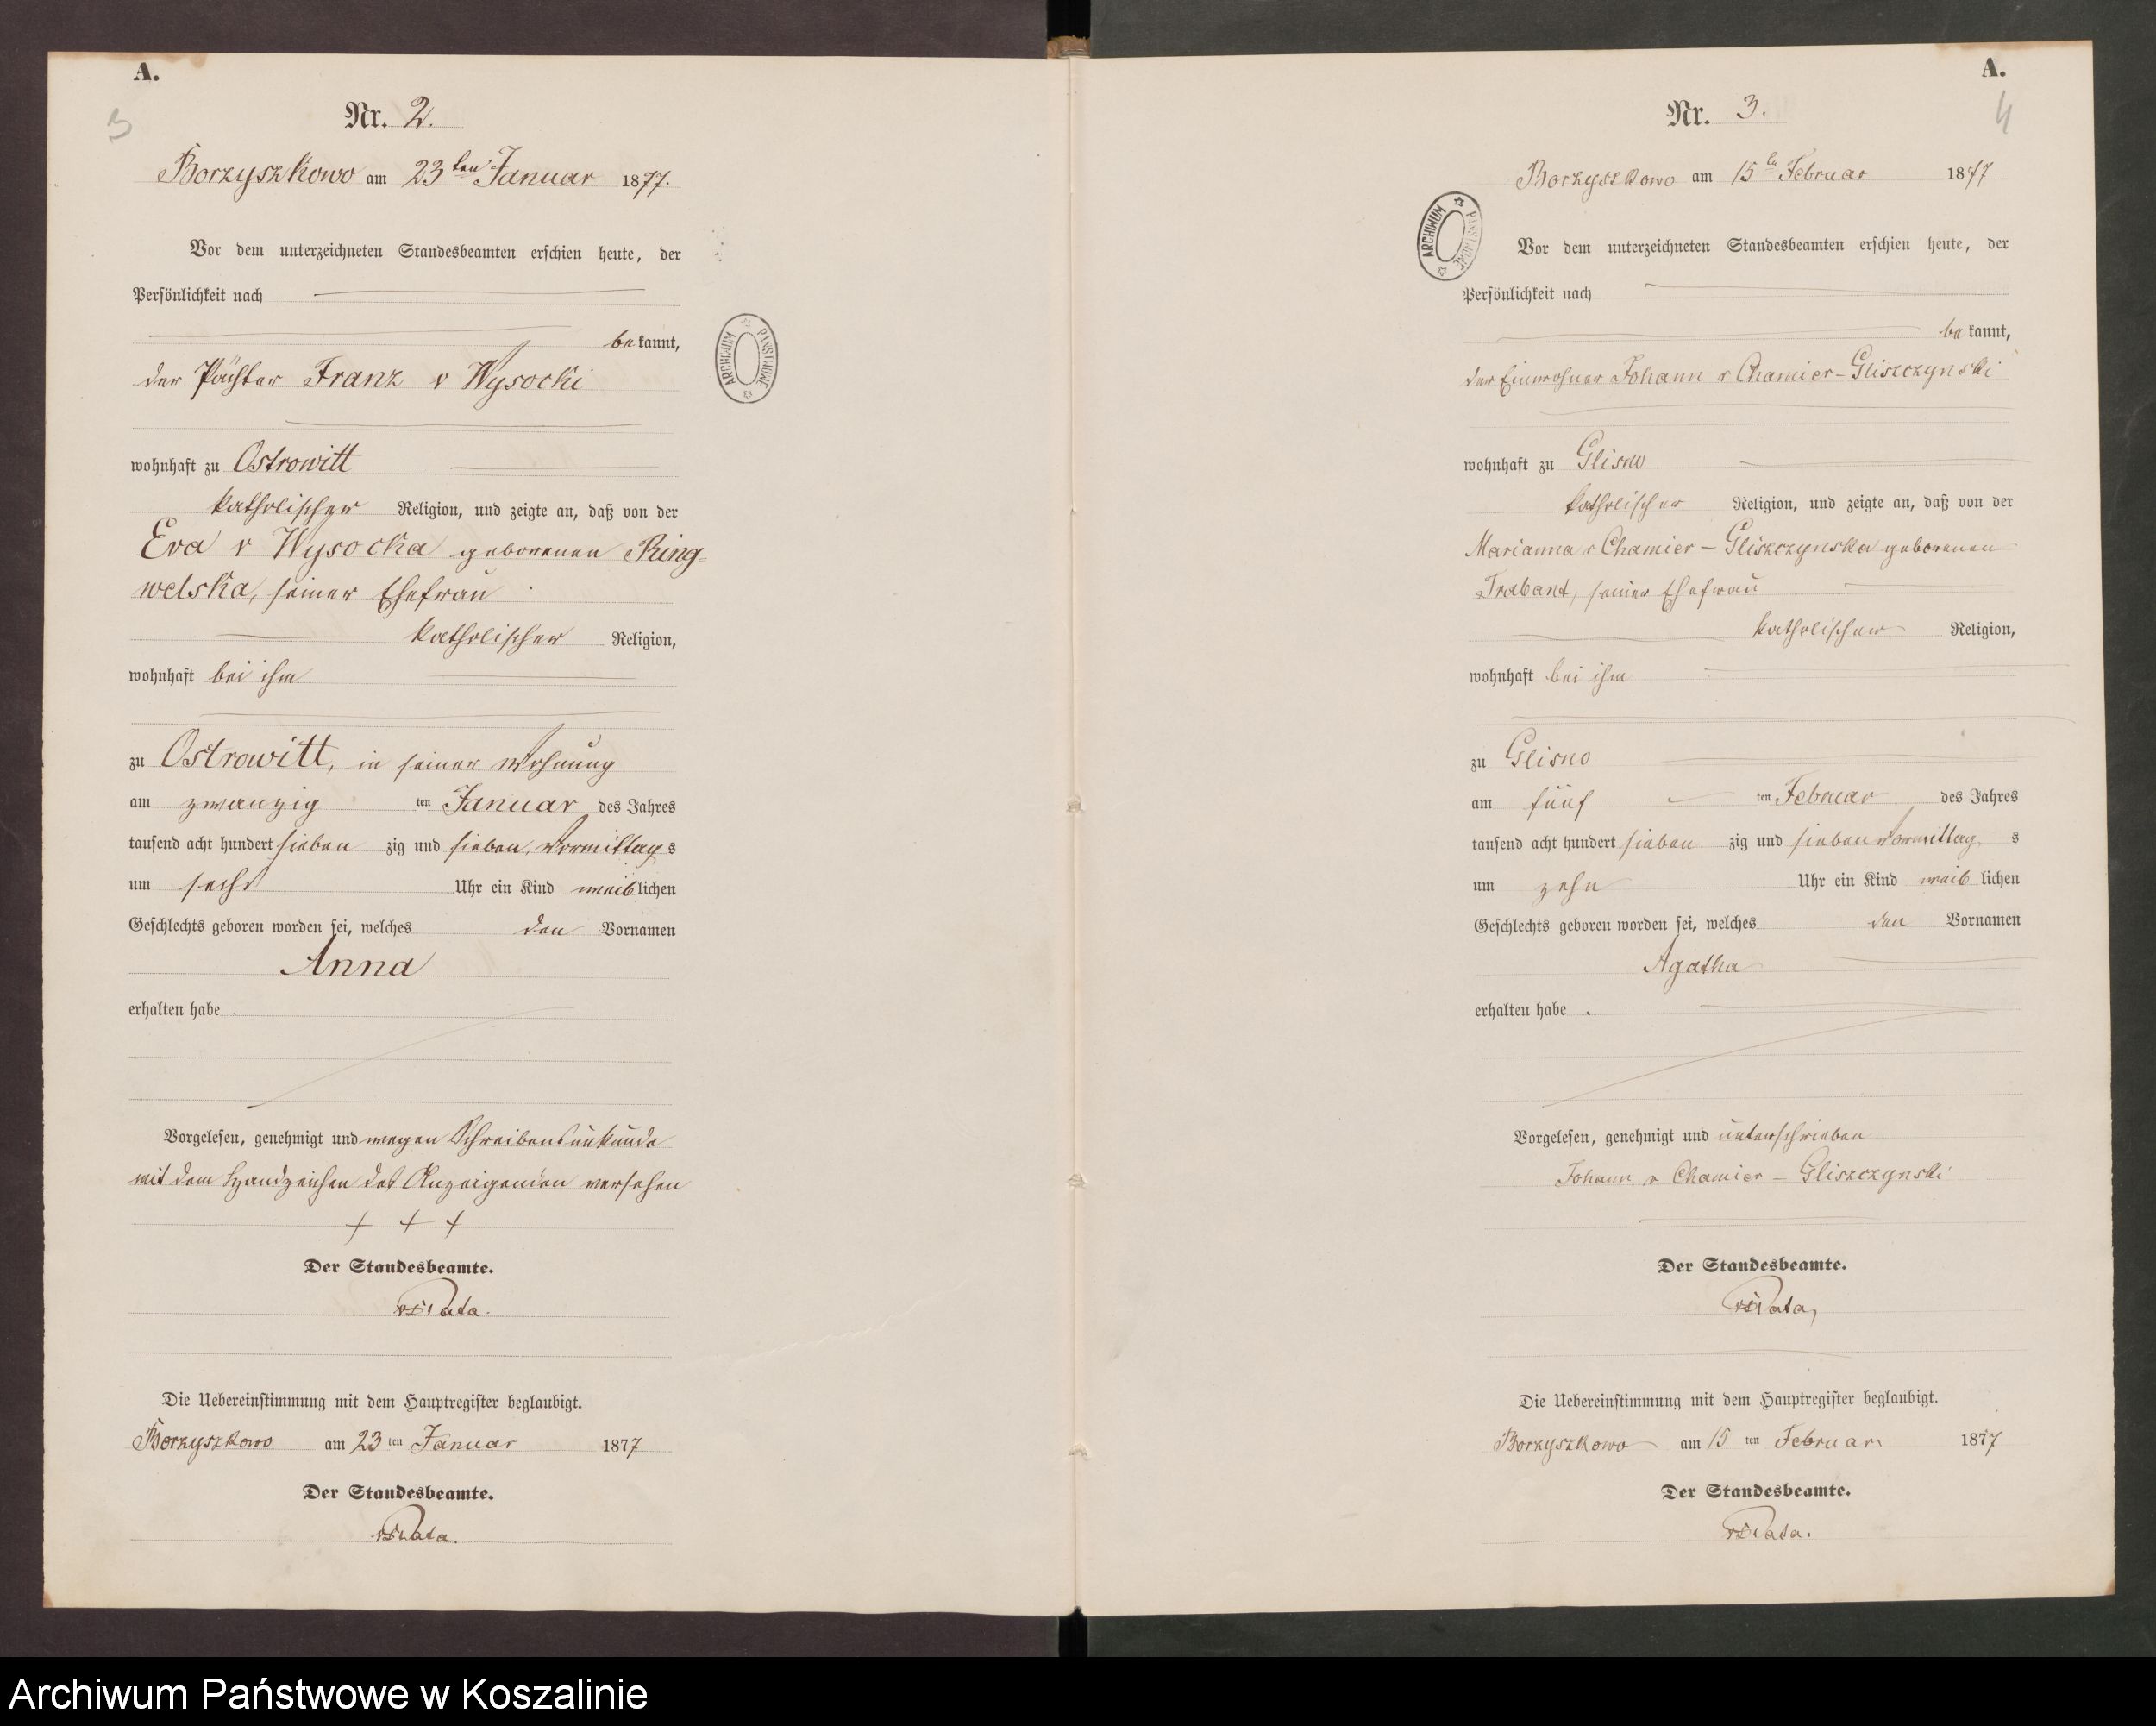 A.
3
Nr. 2.
Borzyszkowo am 23ten Januar 1877.
Vor dem unterzeichneten Standesbeamten erschien heute, der
Persönlichkeit nach
bekannt,
der Pächter Franz v Wysocki
wohnhaft zu Ostrowitt
katholischer Religion, und zeigte an, daß von der
Eva v Wysocka geborenen Ring-
welska, seiner Ehefrau
katholischer Religion,
wohnhaft bei ihm
zu Ostrowitt, in seiner Wohnung
am zwanzig ten Januar des Jahres
tausend acht hundert sieben zig und sieben, Vormittags
um sechs Uhr ein Kind weiblichen
Geschlechts geboren worden sei, welches den Vornamen
Anna
erhalten habe.
Vorgelesen, genehmigt und wegen Schreibensunkunde
mit dem Handzeichen des Anzeigenden versehen
+ + +
Der Standesbeamte.
Die Uebereinstimmung mit dem Hauptregister beglaubigt.
Borzyszkowo am 23 ten Januar 1877
Der Standesbeamte.
ARCHIWUM PAŃSTWOWE
A.
4
Nr. 3.
Borzyszkowo am 15ten Februar 1877
Vor dem unterzeichneten Standesbeamten erschien heute, der
Persönlichkeit nach
bekannt,
der Einwohner Johann v Chamier-Gliszczynski
wohnhaft zu Glisno
katholischer Religion, und zeigte an, daß von der
Marianna v Chamier-Gliszczynska geborenen
Trabant, seiner Ehefrau
katholischer Religion,
wohnhaft bei ihm
zu Glisno
am fünf ten Februar des Jahres
tausend acht hundert sieben zig und sieben Vormittag s
um zehn Uhr ein Kind weib lichen
Geschlechts geboren worden sei, welches den Vornamen
Agatha
erhalten habe.
Vorgelesen, genehmigt und unterschrieben
Johann v Chamier-Gliszczynski
Der Standesbeamte.
Die Uebereinstimmung mit dem Hauptregister beglaubigt.
Borzyszkowo am 15 ten Februar 1877
Der Standesbeamte.
ARCHIWUM PAŃSTWOWE
Archiwum Państwowe w Koszalinie